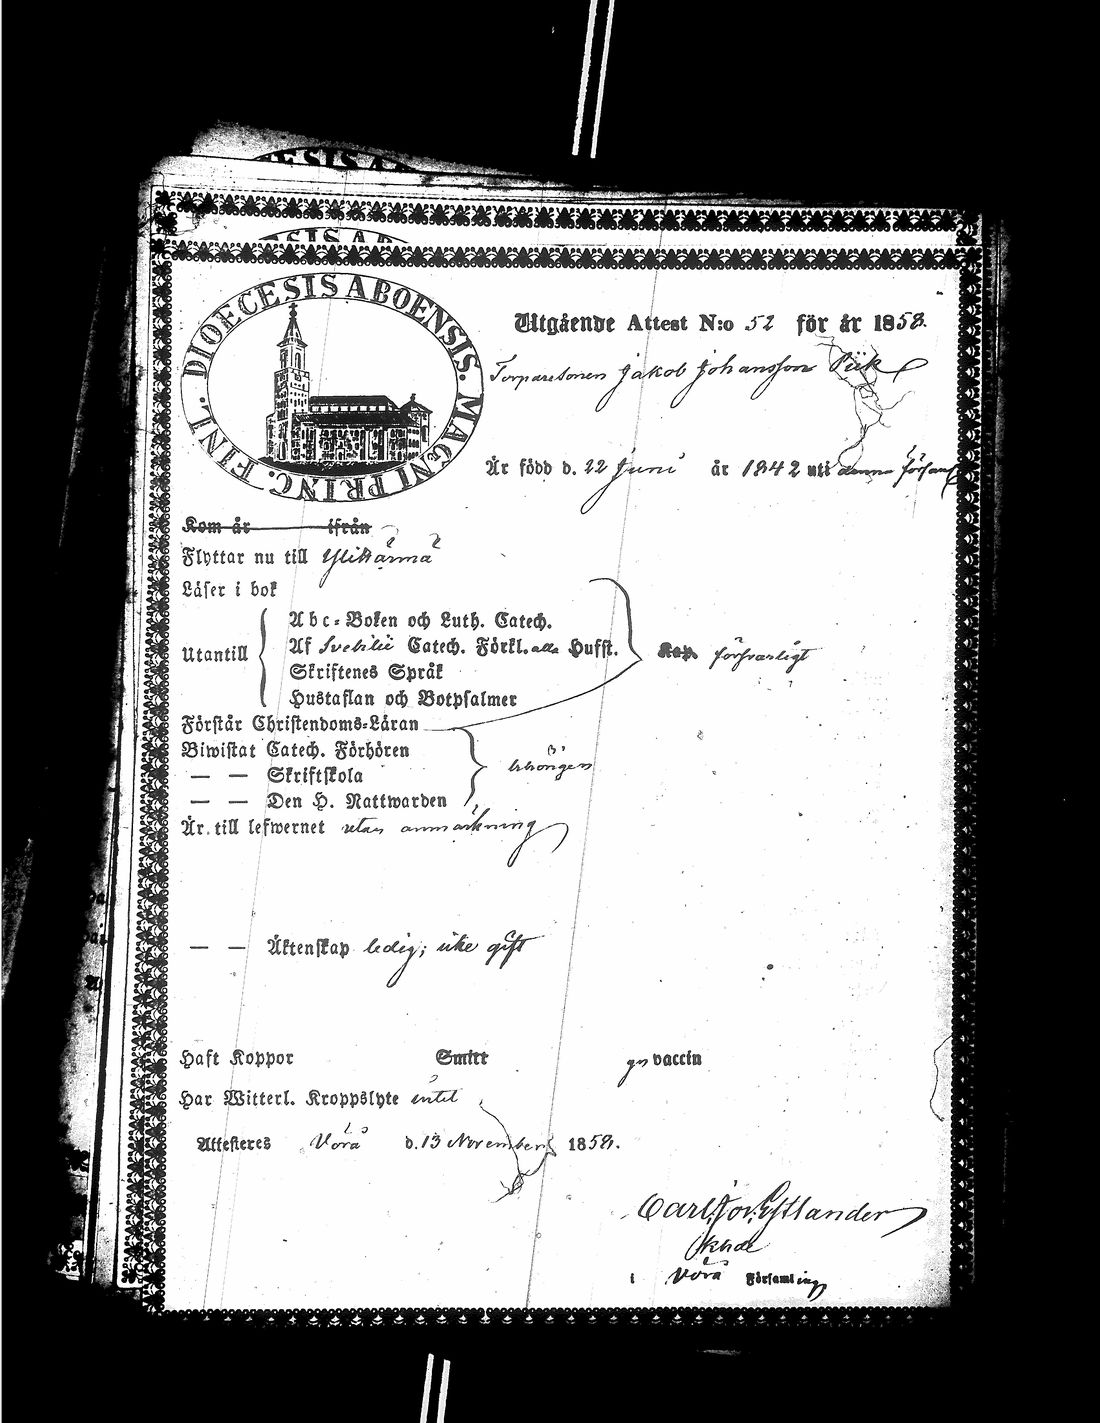 ESIS A
SIS A B
DIOECESIS ABOENSIS. MAGNI PRINC. FINL.
Utgående Attest N:o 52 för år 1858.
Torparesonen Jakob Johansson
Är född d. 22 Juni år 1842 uti denna församl
Kom år ifrån
Flyttar nu till Ylikärmä
Läser i bok
Abc-Boken och Luth. Catech.
Utantill Af Svebilii Catech. Förkl. alla Hufst. Kap. försvarligt
Skriftenes Språk
Hustaflan och Botpsalmer
Förstår Christendoms-Läran
Biwistat Catech. Förhören
— — Skriftskola
— — Den H. Nattwarden
Är till lefwernet utan anmärkning
— — Äktenskap ledig; icke gift
Haft Koppor Smitt vaccin
Har Witterl. Kroppslyte intet
Attesteres Vörå d. 13 November 1858.
Carl
i Vörå Församling